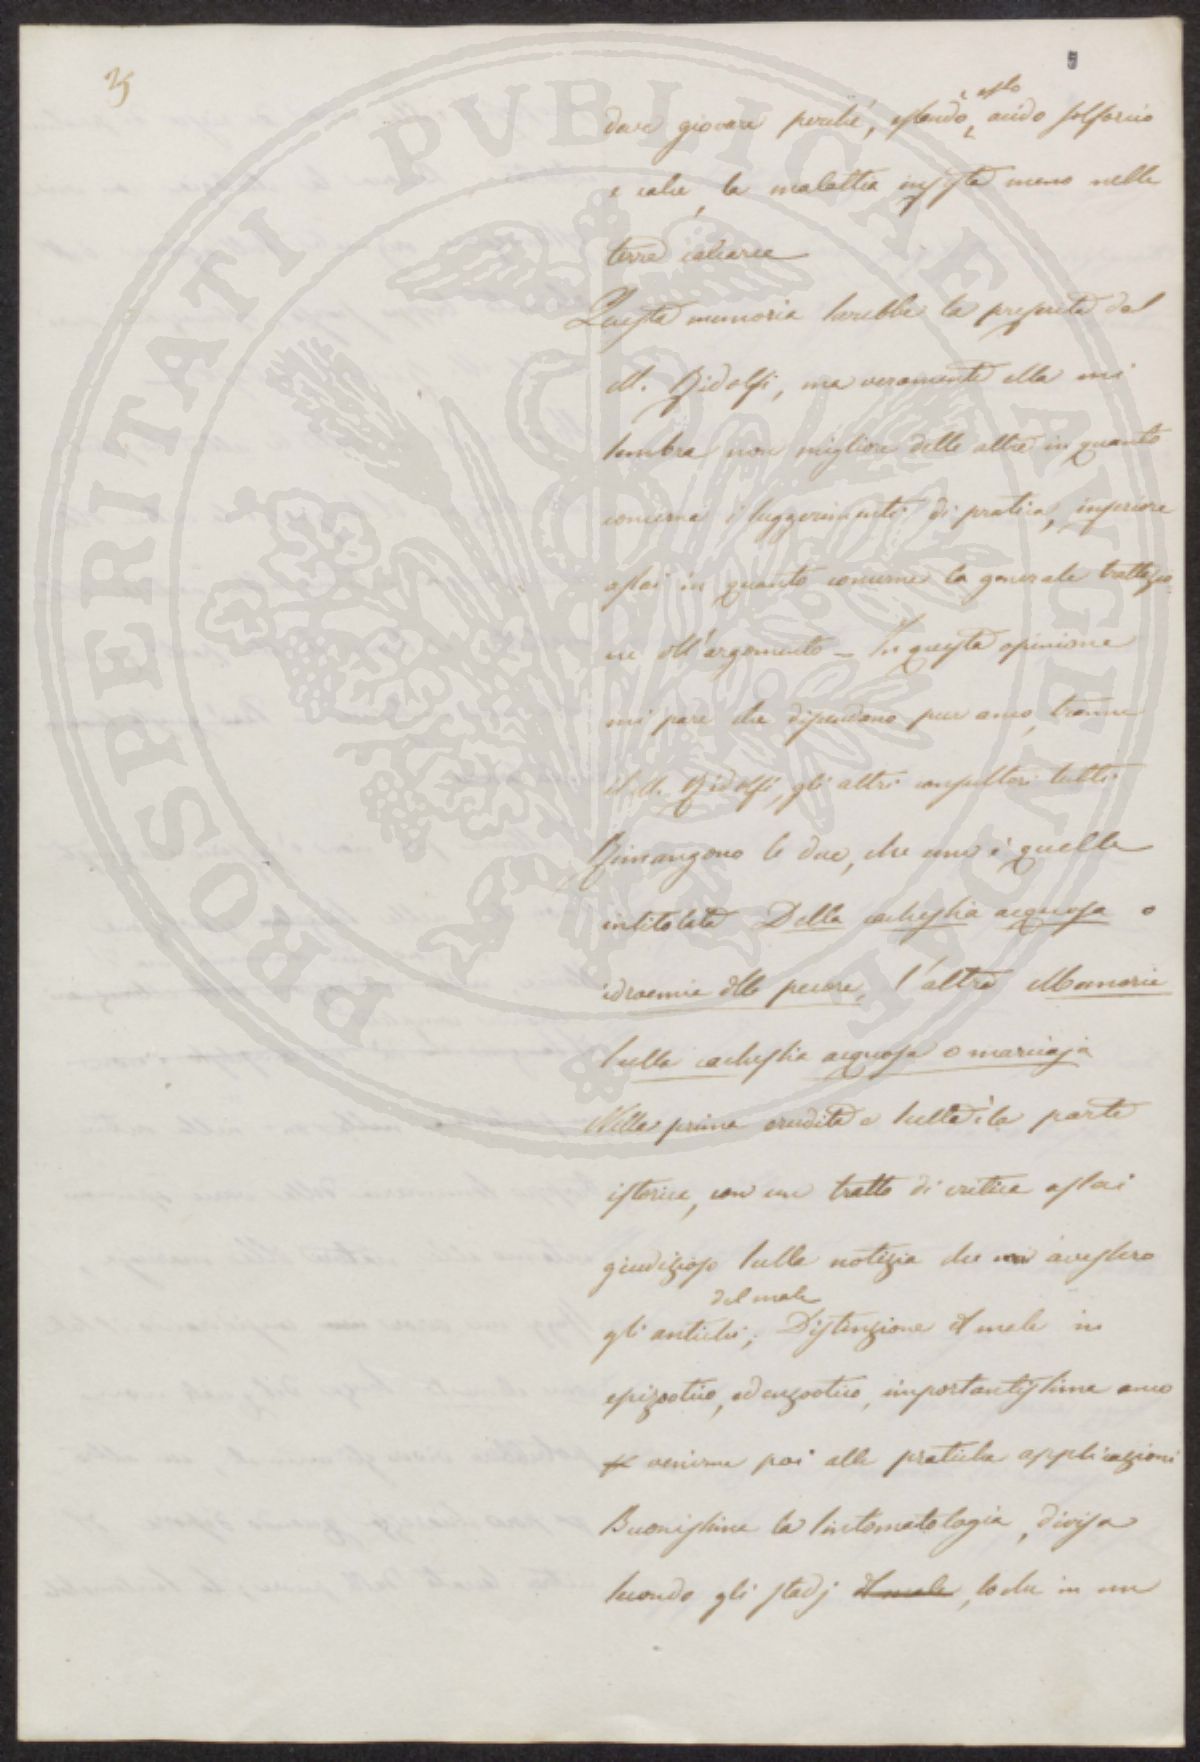 25
esso
deve giovare perché, essendo acido solforico
e calce, la malattia insista meno nelle
terre calcaree
Questa memoria sarebbe la preferita dal
M. Ridolfi, ma veramente ella mi
sembra non migliore delle altre in quanto
concerne i suggerimenti di pratica, inferiore
assai in quanto concerne la generale trattazio
ne dell'argomento — In questa opinione
mi pare che dipendano pur anco, tranne
il M. Ridolfi, gli altri consultori tutti
Rimangono le due, che una è quella
intitolata Della cachessia acquosa o
idroemia delle pecore, l'altra Memoria
sulla cachessia acquosa o marciaja
Nella prima erudita e bella è la parte
istorica, con un tratto di critica assai
giudizioso sulla notizia che ne avessero
del male
gli antichi; Distinzione del male in
epizootico, ed enzootico, importantissima anco
per venirne poi alle pratiche applicazioni
Buonissima la sintomatologia, divisa
secondo gli stadj del male, lo che in un
PROSPERITATI PVBLICAE AVGENDAE